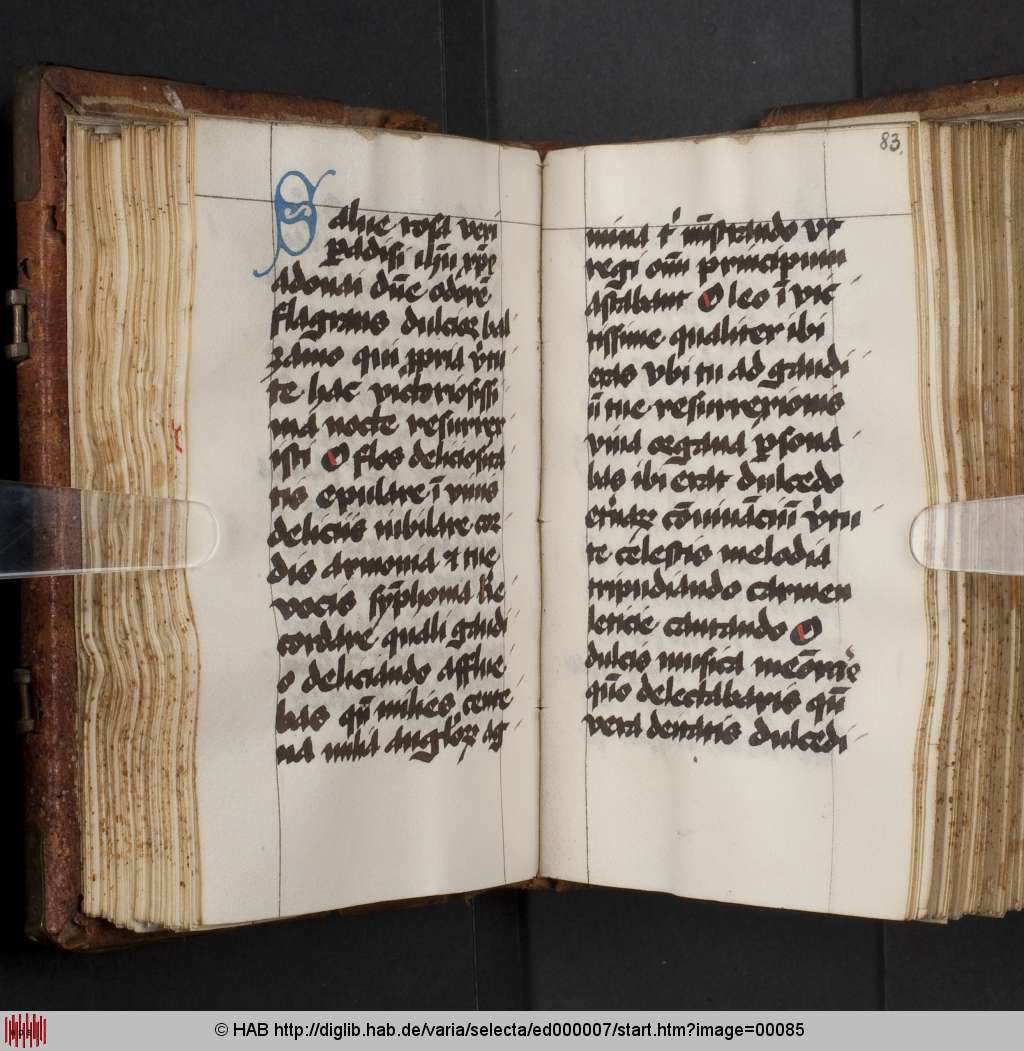 Salue rosa veri
paradisi ihū xp̄e
adonai dn̄e odorē
flagrans dulcior bal
zamo qui ꝓpria v̓tu
te hac victoriosissi
ma nocte resurrex
isti O flos deliciosita
tis epulare ī viuis
deliciis iubilare cor
dis armonia ⁊ tue
vocis sȳphonia Re
cordare quali gaudi
o deliciando afflue
bas qn̄ milies cente
na milia angl̓oꝝ ag
83.
mina t̓ mīstrando vt
regi om̄ principum
astabant O leo ī vic
tissime qualiter ibi
eras vbi tu ad gaudi
ū tue resurrexionis
viua organa ꝑsona
bas ibi erat dulcedo
et̓naꝝ cōmināciū v̓tu
te celestis melodia
tripudiando carmen
leticie cantando O
dulcis musica
quō delectabaris qn̄
vera deitatis dulcedi
© HAB http://diglib.hab.de/varia/selecta/ed000007/start.htm?image=00085